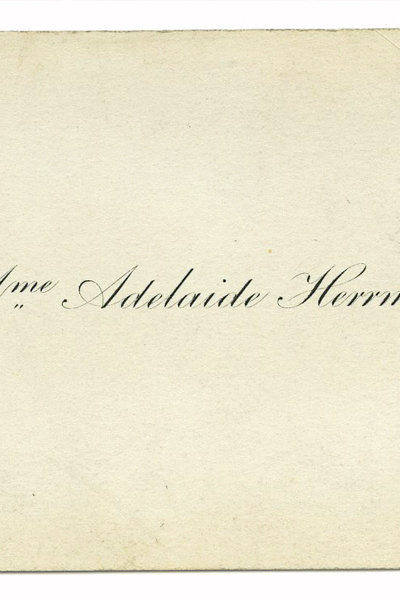 Mme Adelaide Herrm